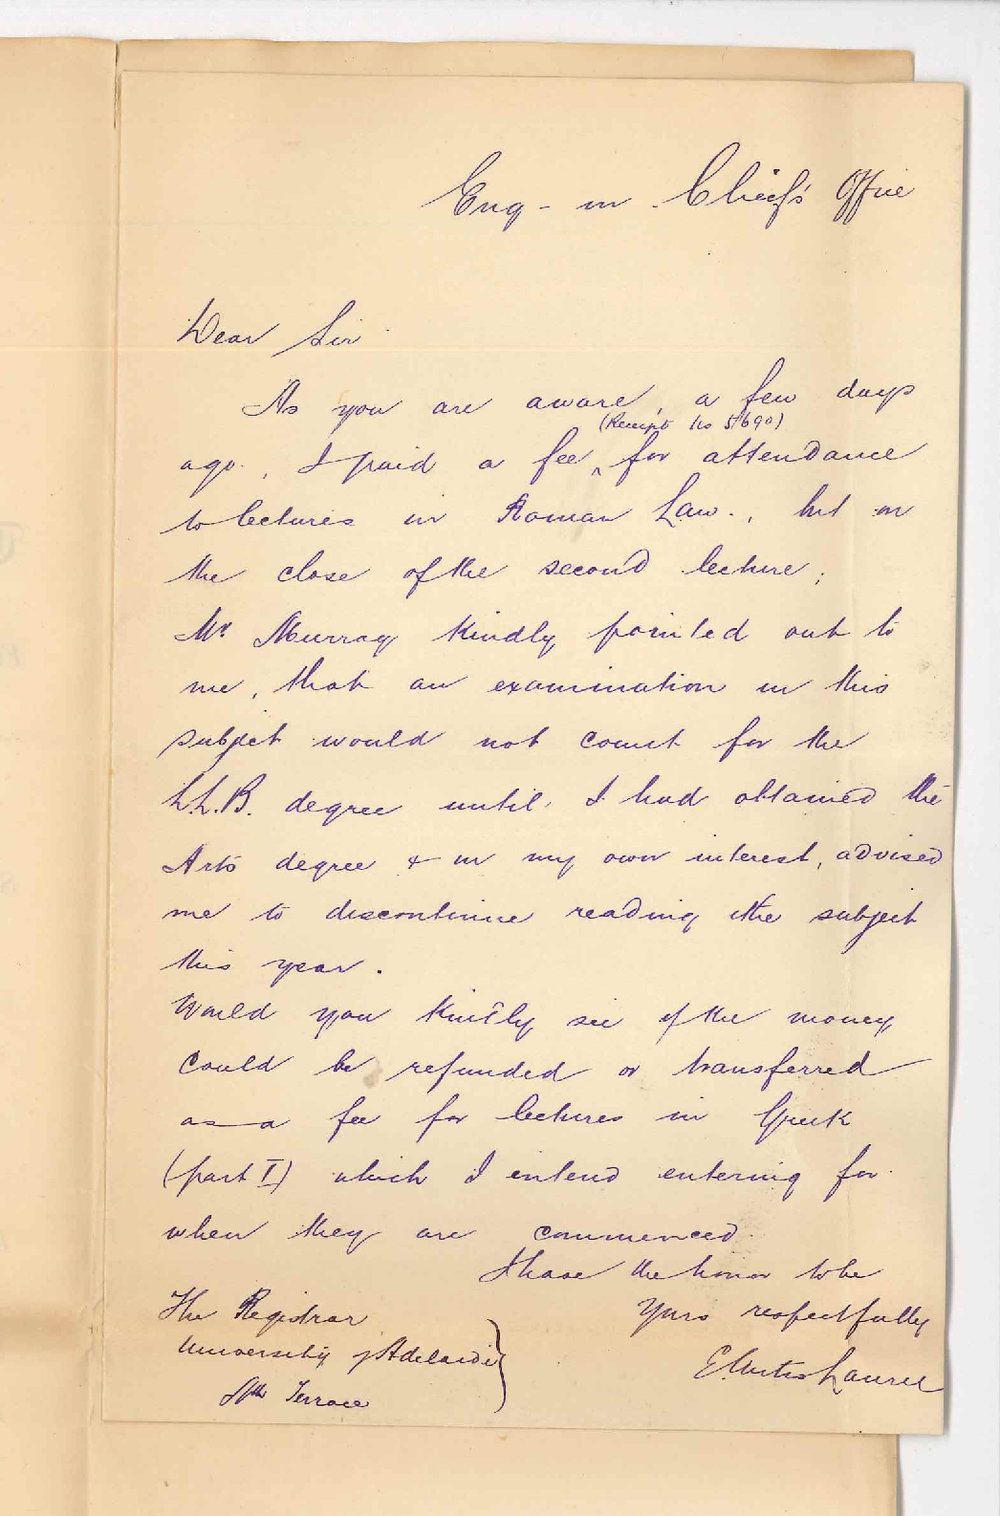 Eng - in - Chief's Office
Dear Sir
As you are aware, a few days
(Receipt No 5690)
ago., I paid a fee ^ for attendance
to lectures in Roman Law., but on
the close of the second lecture,
Mr Murray kindly pointed out to
me, that an examination in this
subject would not count for the
LL.B. degree until, I had obtained the
Arts degree & in my own interest, advised
me to discontinue reading the subject
this year.
Would you kindly see if the money
could be refunded or transferred
as a fee for lectures in Greek
(part I) which I intend entering for
when they are commenced.
I have the honor to be
Yours respectfully
The Registrar
University of Adelaide
Nth Terrace